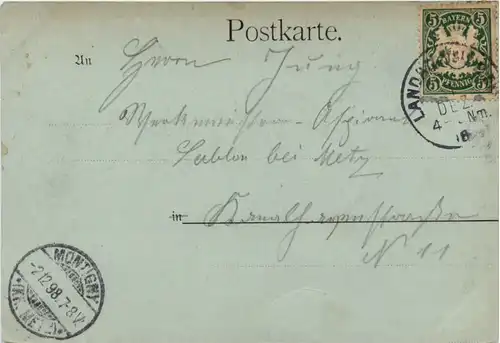 Postkarte.
An Herrn Jung
Werkmeister-Aspirant
Sablon bei Metz
in Kanalhafenstraße
N 11
5 BAYERN 5
5 PFENNIG 5
LAND
DEZ.
4 Nm.
MONTIGNY
2.12.98.7-8V.
(KR. METZ)